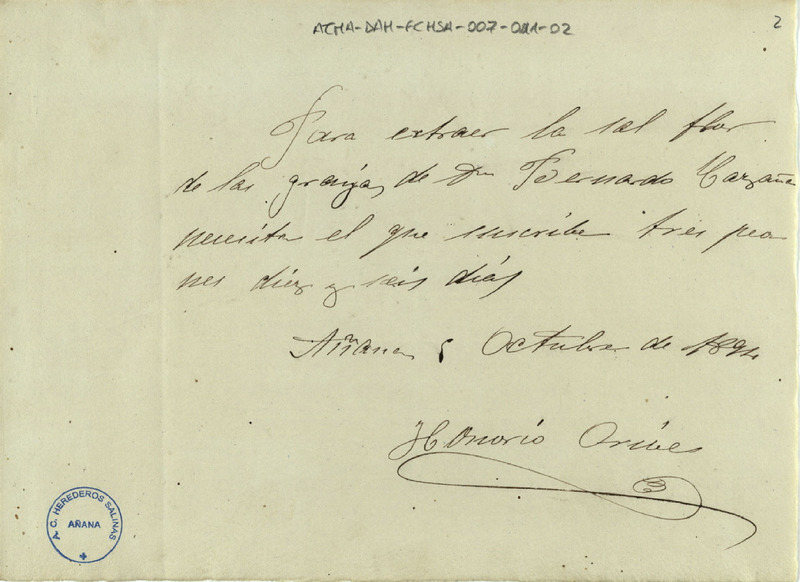 ACMA-DAH-FCHSA-007-011-02
2
Para extraer la sal flor
de las granjas de Dn Bernardo
necesita el que suscribe tres peo
nes diez y seis días
Añana 5 Octubre de
Honorio Oribes
A. C. HEREDEROS SALINAS
AÑANA